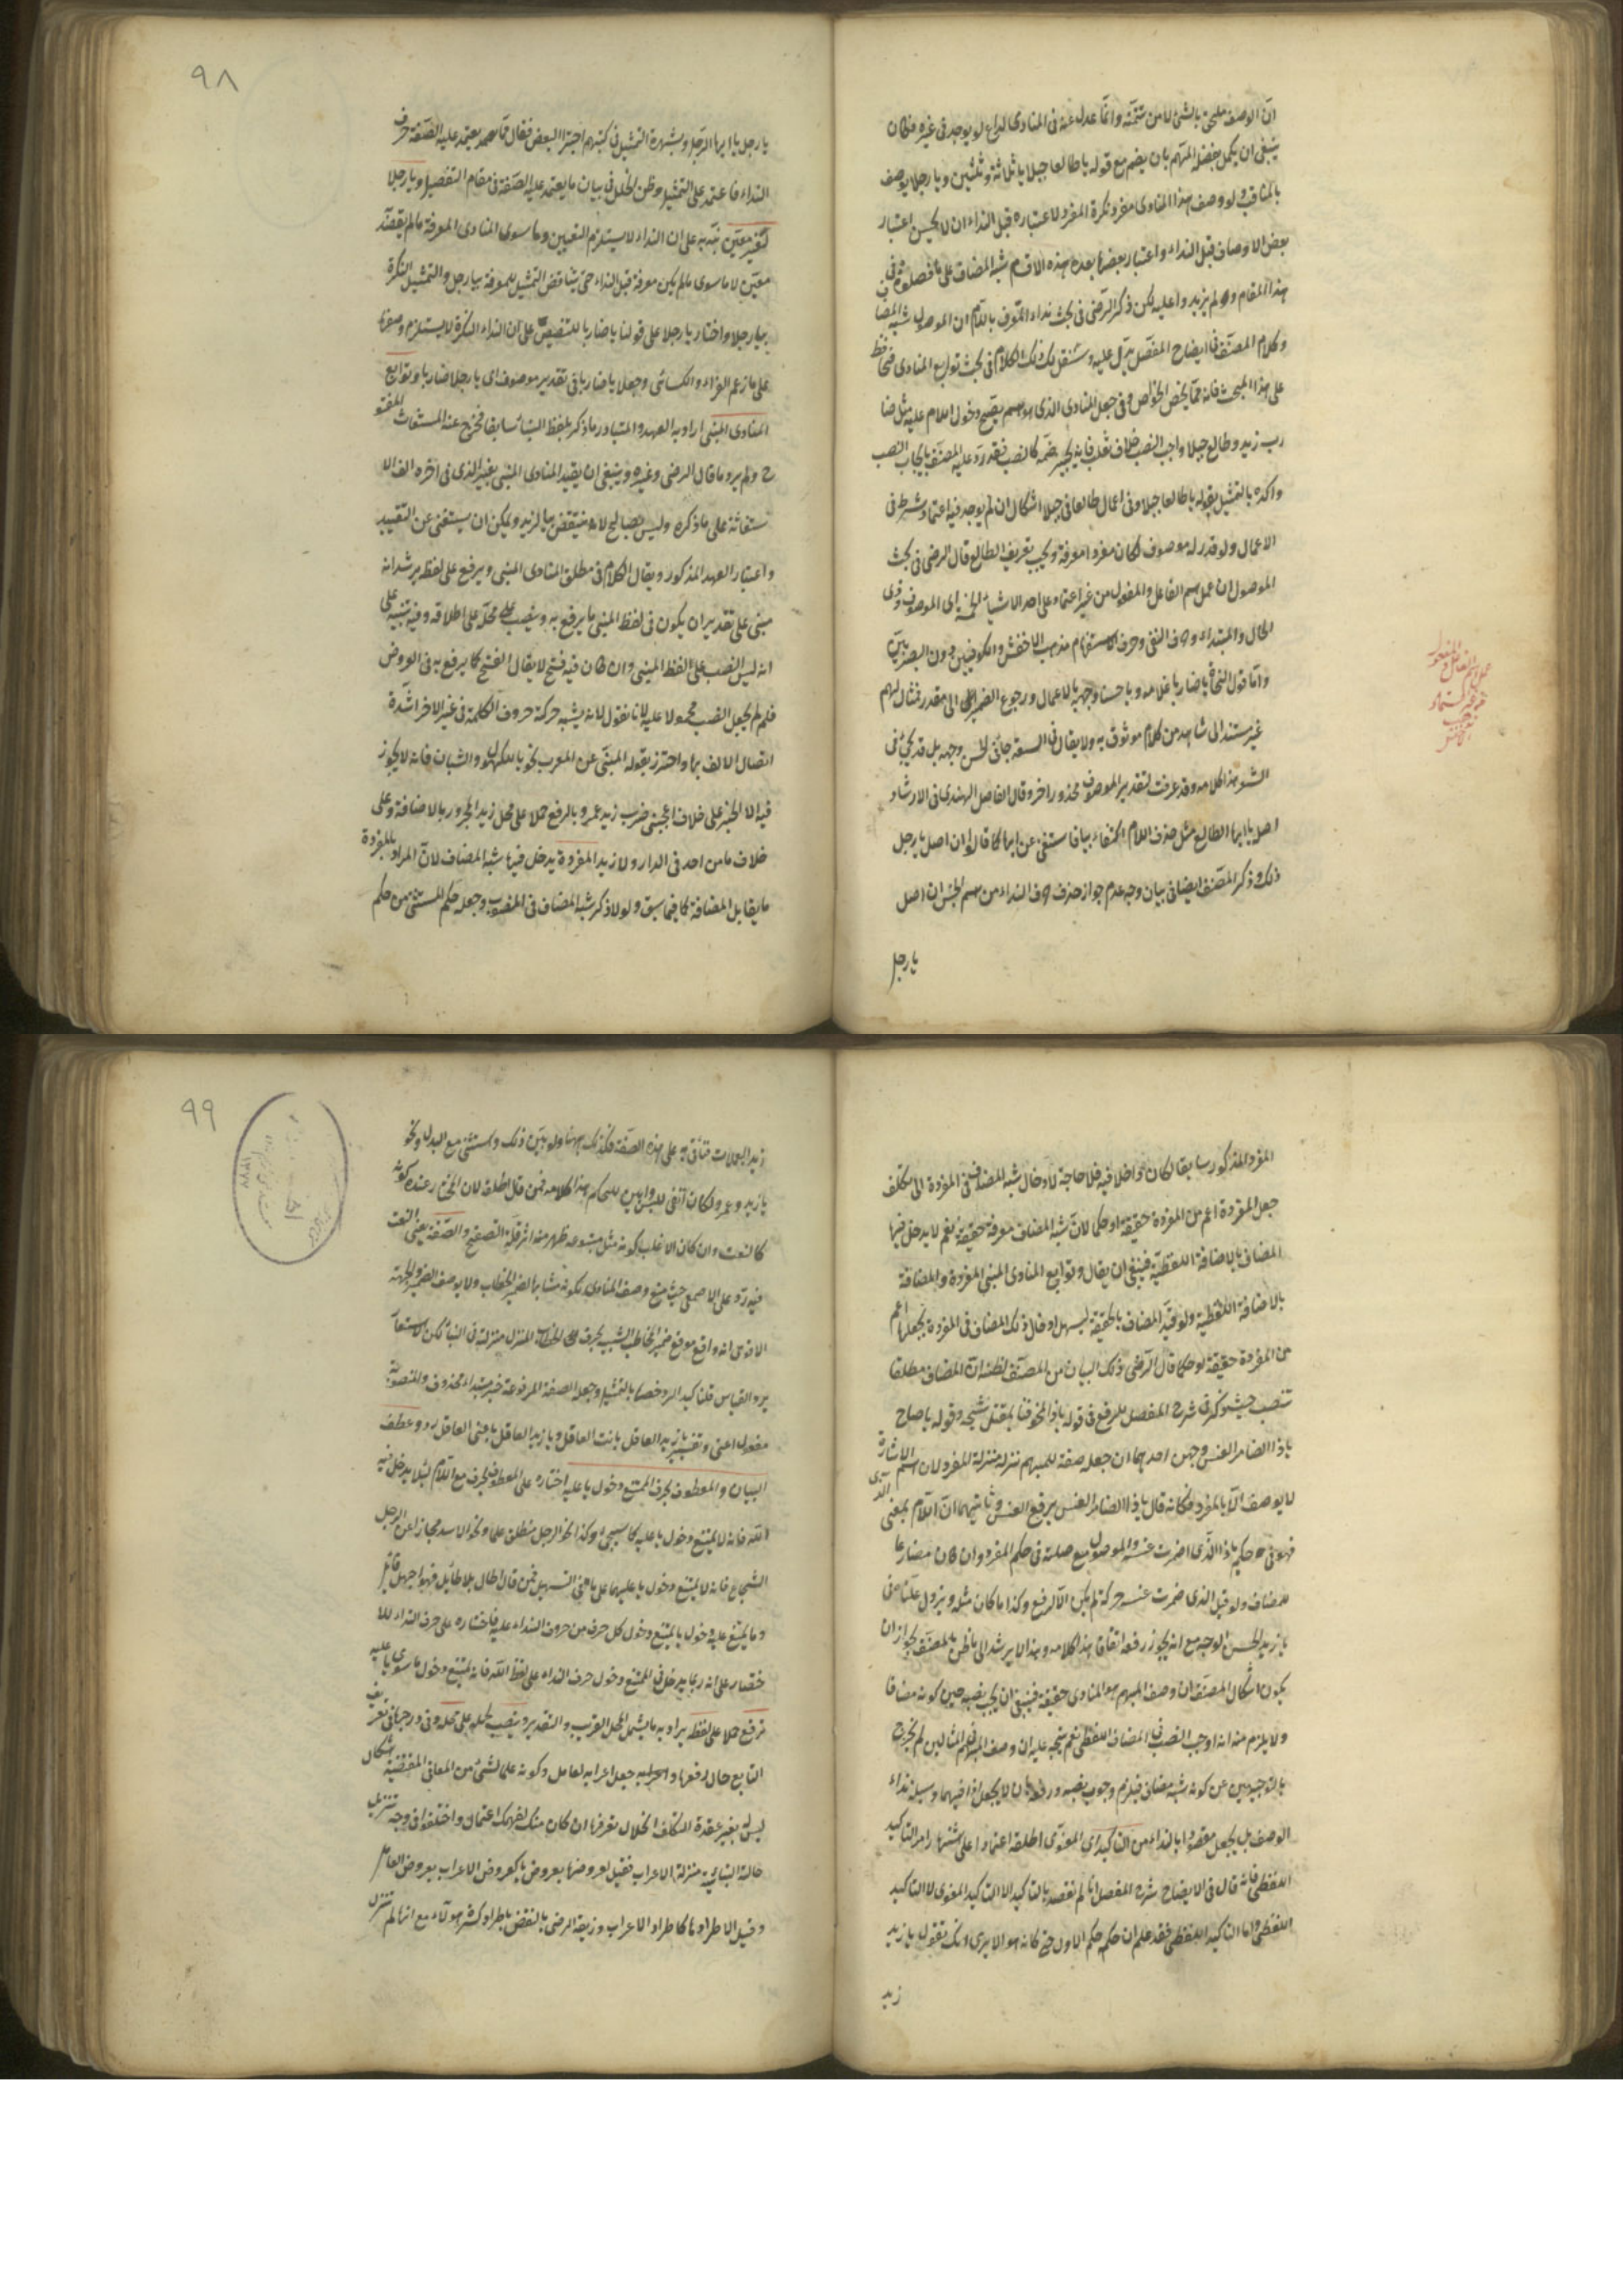 ان الوصف ملحق بالشئ لا من تتمته وانما عدل عنه فى المنادى لداع لو يوجد فى غيره فكان
ينبغى ان يكمل بان يضم مع قوله يا طالعا جبلا يا ثلاثة وثلثين ويا رجلا يوصف
ولو وصف هذا المنادى مفرد نكرة المفرد لاعتباره قبل النداء ان لا يحسن اعتبار
بعض الاوصاف قبل النداء واعتبار بعضها بعده هذه الاقسام شبه المضاف على ما فصلوه فى
هذا المقام ولم يزيدوا عليه لكن ذكر الرضى فى بحث نداء المعرف باللام ان الموصول شبه المضاف
وكلام المصنف فى ايضاح المفصل يدل عليه وسننقل لك ذلك الكلام فى بحث توابع المنادى فتحافظ
على هذا المبحث فانه مما يخص الخواص وفى جعل المنادى الذى هو اسم يصح دخول اللام عليه مثل ضا
رب زيد وطالع جبلا واجب النصب خلاف ثعلب فانه يجيز ضمه كالنصب فقد رد عليه المصنف بايجاب النصب
واكده بالتمثيل بقوله يا طالعا جبلا وفى اعمال طالعا فى جبلا اشكال ان لم يوجد فيه اعتماد شرط فى
الاعمال ولو قدر له موصوف لكان مفردا معرفة ويجب تعريف الطالع قال الرضى فى بحث
الموصول ان عمل اسم الفاعل والمفعول من غير اعتماد على احد الاشياء الخمسة اى الموصوف وذى
الحال والمبتداء وحرف النفى وحرف الاستفهام مذهب الاخفش والكوفيين دون البصريين
واما قول النحاة يا ضاربا غلامه ويا حسنا وجهه بالاعمال ورجوع الضمير الى مقدر فمثال لهم
غير مستند الى شاهد من كلام موثوق به ولا يقال فى السعة جائنى حسن وجهه بل قد يجئ فى
الشعر هذا كلامه وقد عرفت لتقدير الموصوف محذورا اخر وقال الفاضل الهندى فى الارشاد
اصل يا ايها الطالع مثل حذف اللام اكتفاء بيا فاستغنى عن ايها كما قالوا ان اصل يا رجل
ذلك وذكر المصنف ايضا فى بيان وجه عدم جواز حذف حرف النداء من اسم الجنس ان اصل
يا رجل
عمل اسم الفاعل والمفعول
٩٨
يا رجل يا ايها الرجل وبشهرة التمثيل فى كتبهم اجترأ البعض فقال
النداء فاعتمد على التمثيل وظن الخلل فى بيان ما يعتمد عليه الصفة فى مقام التفصيل ويا رجلا
لغير معين نبه به على ان النداء لا يستلزم التعيين وما سوى المنادى المعرفة ما لم يقصد
معين لا ما سوى ما لم يكن معرفة قبل النداء حتى يتناقض التمثيل للمعرفة بيا رجل والتمثيل للنكرة
بيا رجلا واختار يا رجلا على قولنا يا ضاربا للتنصيص على ان النداء النكرة لا يستلزم وصفها
على ما زعم الفراء والكسائى وجعلا يا ضاربا فى تقدير موصوف اى يا رجلا ضاربا وتوابع
المنادى المبنى اراد به العهد والمتبادر ما ذكر بلفظ البناء سابقا فخرج عنه المستغاث المفتو
ح ولم يرد ما قال الرضى وغيره وينبغى ان يقيد المنادى المبنى بغير الذى فى اخره الف الا
ستغاثة على ما ذكره وليس بصالح لانه منتقض بيا لزيد ويمكن ان يستغنى عن التقييد
واعتبار العهد المذكور ويقال الكلام فى مطلق المنادى المبنى ويرفع على لفظه يرشد انه
مبنى على تقدير ان يكون فى لفظ المبنى ما يرفع به وينصب على محله على اطلاقه وفيه تنبيه على
انه ليس النصب على لفظ المبنى وان كان فيه فتح لا يقال الفتح كما يرفع به فى العروض
فلم لم يجعل النصب محمولا عليه لانا نقول لانه يشبه حركة حروف الكلمة فى غير الاخر لشدة
اتصال الالف بها واحترز بقوله المبنى عن المعرب نحو يا للكهول وللشبان فانه لا يجوز
فيه الا الجر على خلاف اعجبنى ضرب زيد عمرو بالرفع حملا على محل زيد المجرور بالاضافة وعلى
خلاف ما من احد فى الدار ولا زيد المفردة يدخل فيها شبه المضاف لان المراد بالمفردة
ما يقابل المضافة كما فيما سبق ولولا ذكر شبه المضاف فى المنصوب وجعله حكم المستثنى من حكم
المفرد المذكور سابقا لكان داخلا فيه فلا حاجة لادخال شبه المضاف فى المفردة الى تكلف
جعل المفردة اعم من المفردة حقيقة او حكما لان شبه المضاف معرفة حقيقة نعم لا يدخل فيها
المضاف بالاضافة اللفظية فينبغى ان يقال وتوابع المنادى المبنى المفردة والمضافة
بالاضافة اللفظية ولو قيد المضاف بالحقيقة ليسهل ادخال ذلك المضاف فى المفردة بجعلها اعم
من المفردة حقيقة او حكما قال الرضى ذلك البيان من المصنف لظنه ان المضاف مطلقا
تنصب حيث ذكر فى شرح المفصل للرفع فى قوله يا ذا المخوفنا بمقتل شيخه وقوله يا صاح
يا ذا الضامر العنس وجهين احدهما ان جعله صفة للمبهم نزله منزلة المفرد لان اسم الاشارة
لا يوصف الا بالمفرد فكانه قال يا ذا الضامر العنس برفع العنس وثانيهما ان اللام بمعنى الذى
فهو فى حكم يا ذا الذى ضمرت عنسه والموصول مع صلته فى حكم المفرد وان كان مضارعا
للمضاف ولو قيل الذى ضمرت عنسه حركة لم يكن الا الرفع وكذا ما كان مثله
يا زيد الحسن الوجه مع انه يجوز رفعه اتفاقا هذا كلامه وهذا لا يرشد الى ما ظن بالمصنف لجواز ان
يكون اشكال المصنف ان وصف المبهم هو المنادى حقيقة فينبغى ان يجب نصبه حين كونه مضافا
ولا يلزم منه انه اوجب النصب فى المضاف اللفظى نعم يتجه عليه ان وصف المبهم فى المثالين لم يخرج
بالتوجيهين عن كونه شبه مضاف فيلزم وجوب نصبه لا يجعل اذا فيهما وسيلة نداء
الوصف بل يجعل مقصودا بالنداء من التاكيد اى المعنوى اطلقه اعتمادا على اشتهار امر التاكيد
اللفظى فانه قال فى الايضاح شرح المفصل انا لم نقصد بالتاكيد الا التاكيد المعنوى لا التاكيد
اللفظى واما التاكيد اللفظى فقد علم ان حكمه حكم الاول حتى كانه هو الا يرى انك تقول يا زيد
زيد
٩٩
زيد اليعملات فتأتى به على هذه الصفة فكذلك ههنا ولو بين ذلك واستثنى مع البدل ونحو
يا زيد وعمرو لكان انفى للبس وابين للحكم هذا كلامه فمن قال اطلقه لان المختار عنده كونه
كالنعت وان كان الاغلب كونه مثل متبوعه ظهر منه اثر قلة التصفح والصفة يعنى النعت
فيه رد على الاصمعى حيث منع وصف المنادى لكونه مشابها لضمير الخطاب ولا يوصف الضمير والجهة
الاقوى انه واقع موقع ضمير المخاطب الشبيه بحرف الخطاب المنزل منزلته فى البناء لكن الاستعمال
يرد القياس فلذا كيد الرد خصها بالتمثيل وجعله الصفة المرفوعة خبر مبتدا محذوف والمنصوبة
مفعول اعنى وتفسير يا زيد العاقل بانت العاقل ويا زيد العاقل باعنى العاقل رد وعطف
البيان والمعطوف بحرف الممتنع دخول يا عليه اختاره على المعطوف بحرف مع اللام لئلا يدخل فيه
الله فانه لا يمتنع دخول يا عليه كما سيجئ وكذا نحو الرجل منطلق علما ونحو الاسد مجازا عن الرجل
الشجاع فانه لا يمتنع دخول يا عليهما على ما فى التسهيل فمن قال اطال بلا طائل فهو اجهل قائل
وما يمتنع عليه دخول يا يمتنع دخول كل حرف من حروف النداء عليه فاختاره على حرف النداء للا
ختصار على انه ربما يدخل فى الممتنع دخول حرف النداء على لفظ الله فانه يمتنع دخول ما سوى يا عليه
ترفع حملا على لفظه يراد به ما يشمل المحل القريب والتقدير وينصب حملا على محله
التابع حال رفعها جعل اعرابه لعامل وكونه علما لشئ من المعانى المقتضية اشكال
ليس له بغير عقدة التكلف انحلال تعرفها ان كان منك لفهمك اعتمال واختلفوا فى وجه تنزيل
حالة البنائية منزلة الاعراب فقيل لعروضها بعروض يا كعروض الاعراب بعروض العامل
وقيل لاطرادها كاطراد الاعراب وزيفه الرضى بالنقض باطراد كسرة هؤلاء مع انها لم تنزل